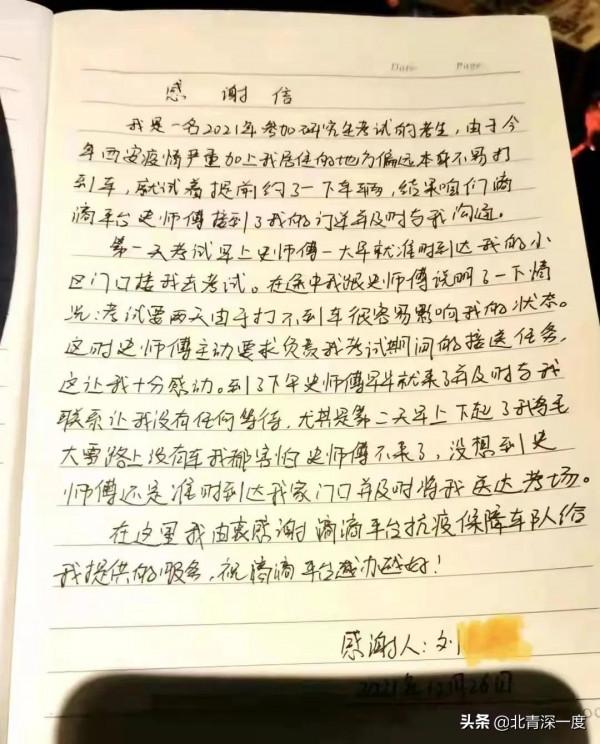 Date Page
感谢信
我是一名2021年参加研究生考试的考生,由于今
年西安疫情严重加上我居住的地方偏远本身不易打
到车,就试着提前约了一下车辆,结果咱们滴
滴平台史师傅接到了我的订单并及时与我沟通。
第一天考试早上史师傅一大早就准时到达我的小
区门口接我去考试。在途中我跟史师傅说明了一下情
况:考试要两天由于打不到车很容易影响我的状态。
这时史师傅主动要求负责我考试期间的接送任务,
这让我十分感动。到了下午史师傅早早就来了并及时与我
联系让我没有任何等待,尤其是第二天早上下起了鹅毛
大雪路上没有车我都害怕史师傅不来了,没想到史
师傅还是准时到达我家门口并及时将我送达考场。
在这里我由衷感谢滴滴平台抗疫保障车队给
我提供的服务,祝滴滴平台越办越好!
感谢人:刘
2021年12月26日
头条 @北青深一度